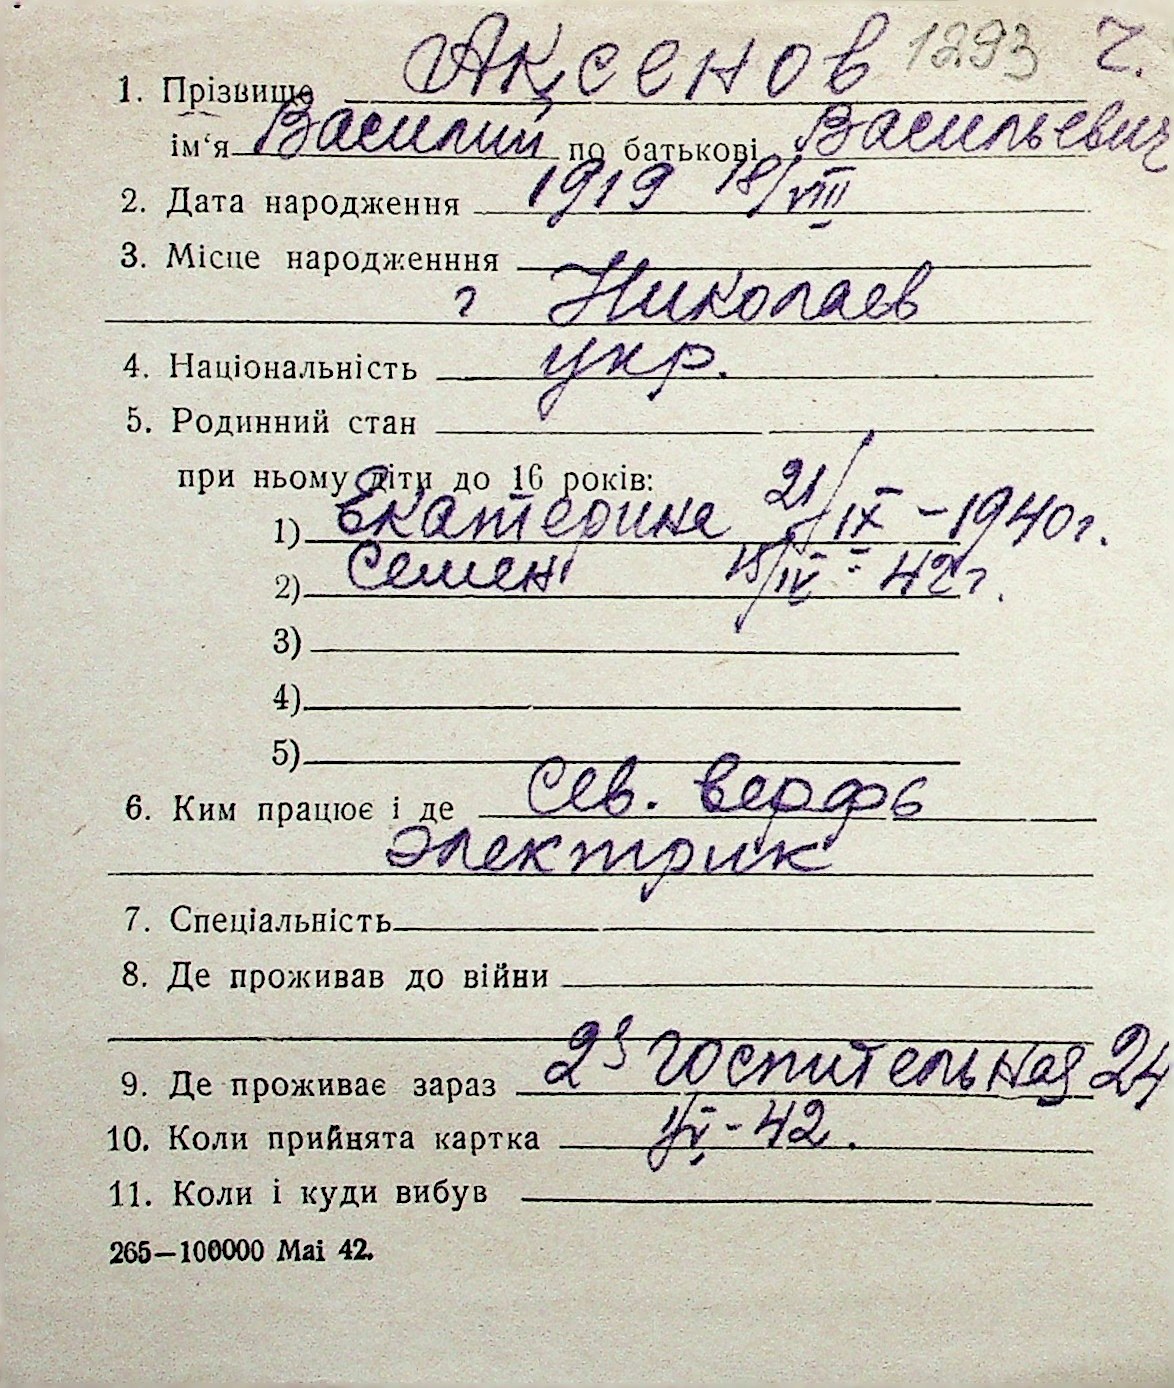 1. Прізвище Аксенов 1293 г.
ім‘я Василий по батькові Васильевич
2. Дата народження 1919 18/VIII
3. Місце народженння
г Николаев
4. Національність укр.
5. Родинний стан
при ньому діти до 16 років:
1) Екатерина 21/IX – 1940 г.
2) Семен 15/IV - 42 г.
3)
4)
5)
6. Ким працює і де Сев. верфь
электрик
7. Спеціальність
8. Де проживав до війни
9. Де проживає зараз 2я Госпительная 24
10. Коли прийнята картка - 42.
11. Коли і куди вибув
265—100000 Mai 42.